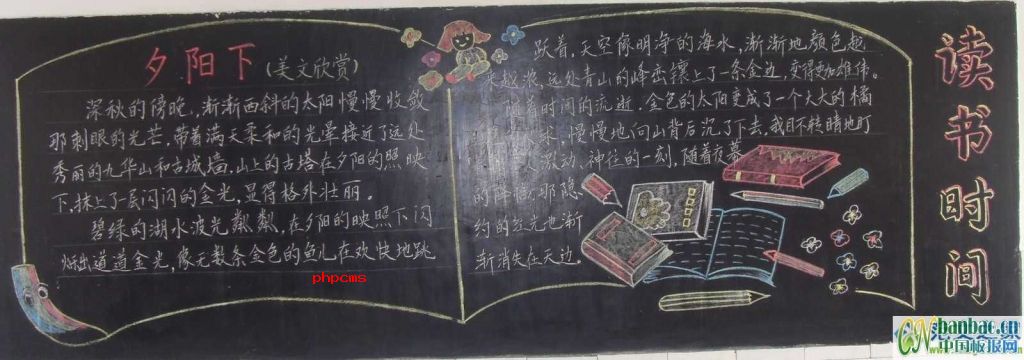 夕阳下(美文欣赏)
深秋的傍晚,渐渐西斜的太阳慢慢收敛
那刺眼的光芒,带着满天柔和的光晕接近了远处
秀丽的九华山和古城墙,山上的古塔在夕阳的照映
下,抹上了一层闪闪的金光,显得格外壮丽。
碧绿的湖水波光粼粼,在夕阳的映照下闪
出道道金光,像无数条金色的鱼儿在欢快地跳
跃着,天空像明净的海水,渐渐地颜色越
来越浓,远处青山的峰峦镶上了一条金边,变得更加雄伟。
随着时间的流逝,金色的太阳变成了一个大大的橘
球,慢慢地向山背后沉了下去,我目不转睛地盯
激动、神往的一刻,随着夜幕
的降临,那隐
约的光也渐
渐消失在天边。
读书时间
phpcms
CN
banbao.cn
中国板报网